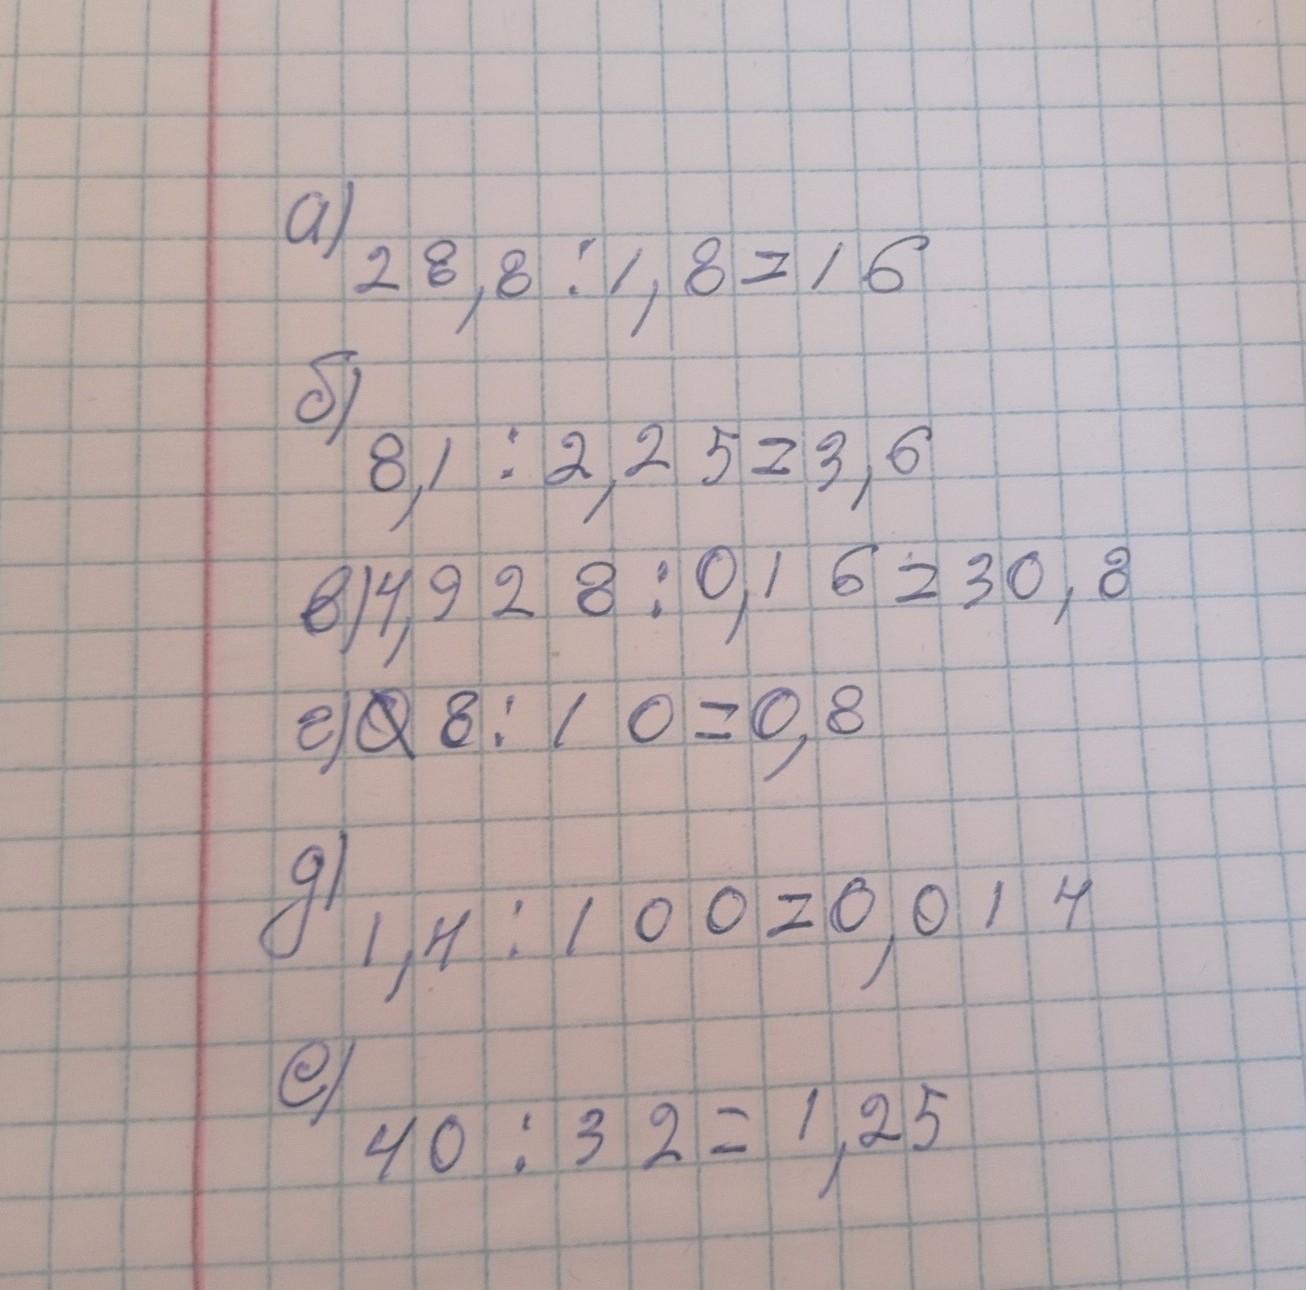 а)
28,8:1,8=16
б)
8,1:2,25=3,6
в)4,928:0,16=30,8
г)8:10=0,8
д)
1,4:100=0,014
е)
40:32=1,25